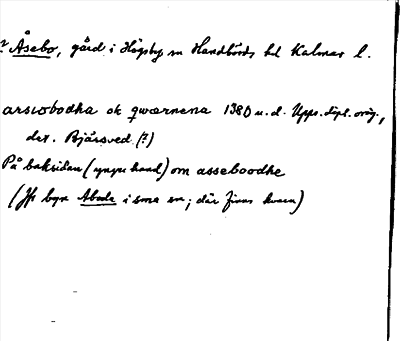 ? Åsebo, gård i Högsby sn Handbörds hd Kalmar l.
arsiobodha ok qwærnena 1380 u.d. Upps. dipl. orig.,
det. Bjärsved (?)
På baksidan (yngre hand) om asseboodhe
(Jfr byn Aboda i sma sn; där finns kvarn)